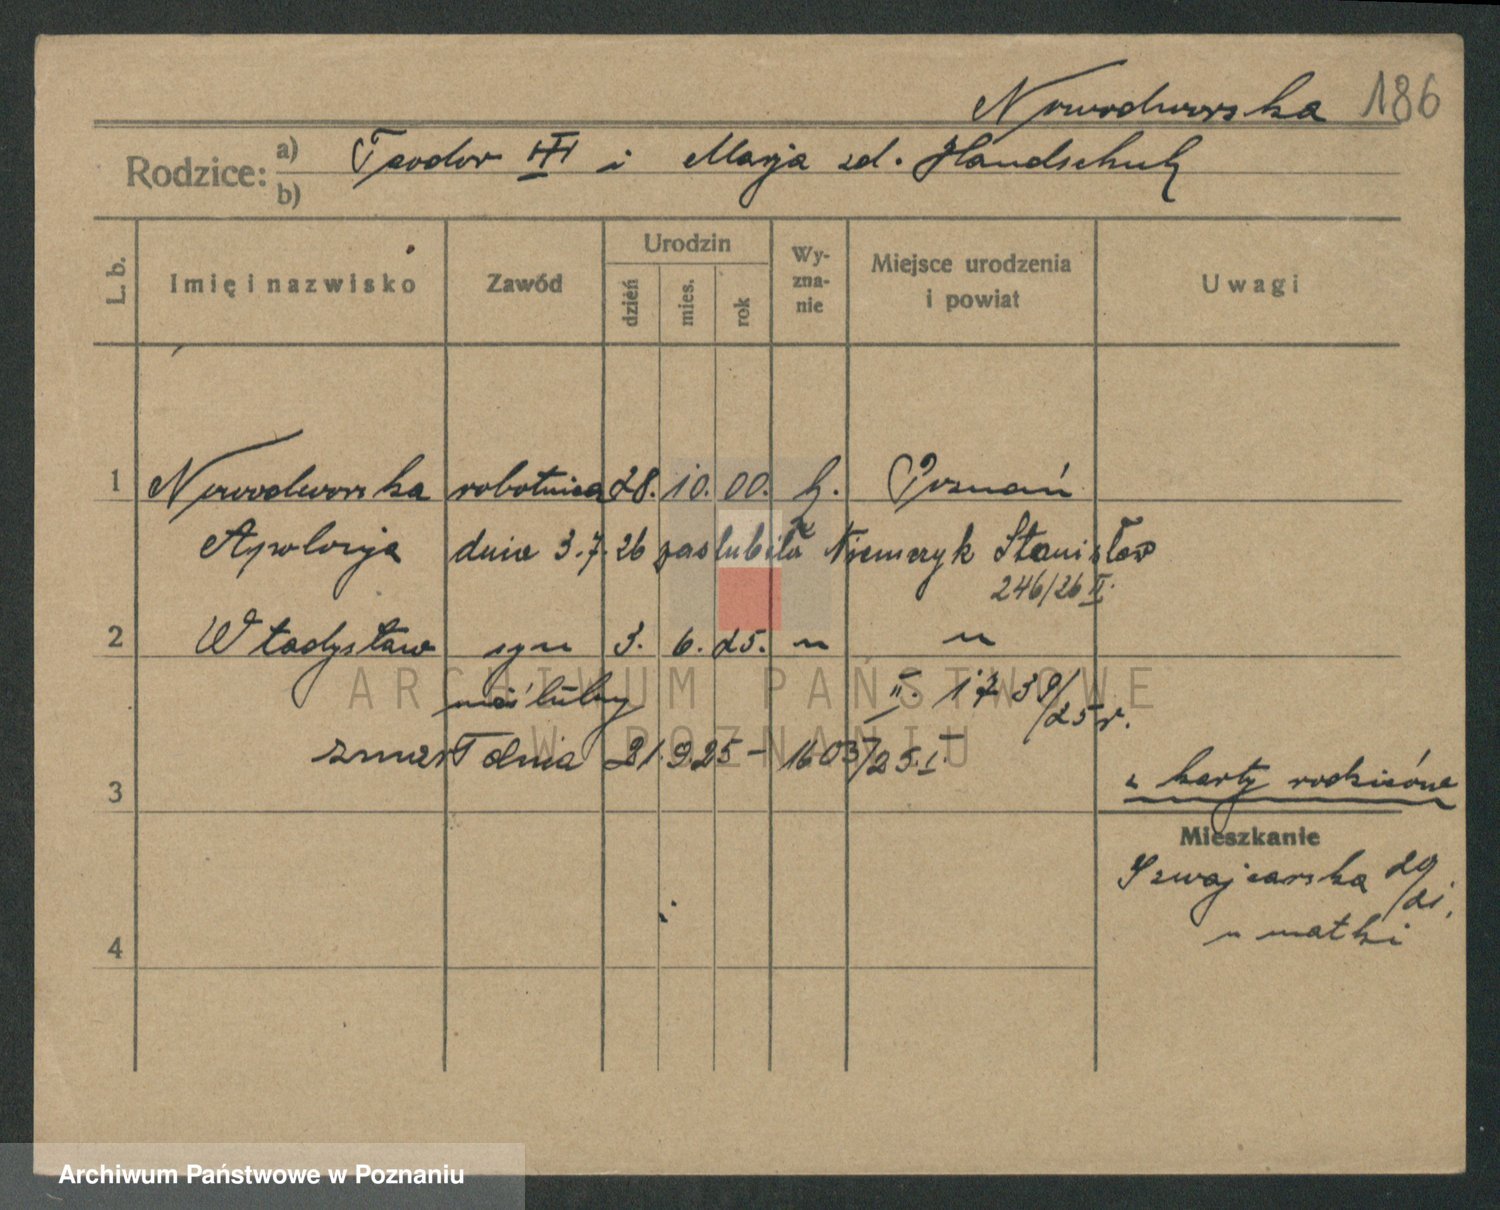 Nowodworska 186
Rodzice: a) b) Teodor III i Marja zd. Handschuh
L. b. Imię i nazwisko Zawód Urodzin dzień mies. rok Wy-zna-nie Miejsce urodzenia i powiat Uwagi
1 Nowodworska robotnica 28. 10. 00. k. Poznań
Apolonja dnia 3.7.26 zaślubiła Niemczyk Stanisław
246/26 II.
2 Władysław syn 3. 6. 25. " "
nieślubny II. 1739/25 r.
zmarł dnia 21.9.25 - 1603/25.I
z karty rodziców
3
Mieszkanie
Szwajcarska 20/21.
u matki
4
ARCHIWUM PAŃSTWOWE
W POZNANIU
Archiwum Państwowe w Poznaniu